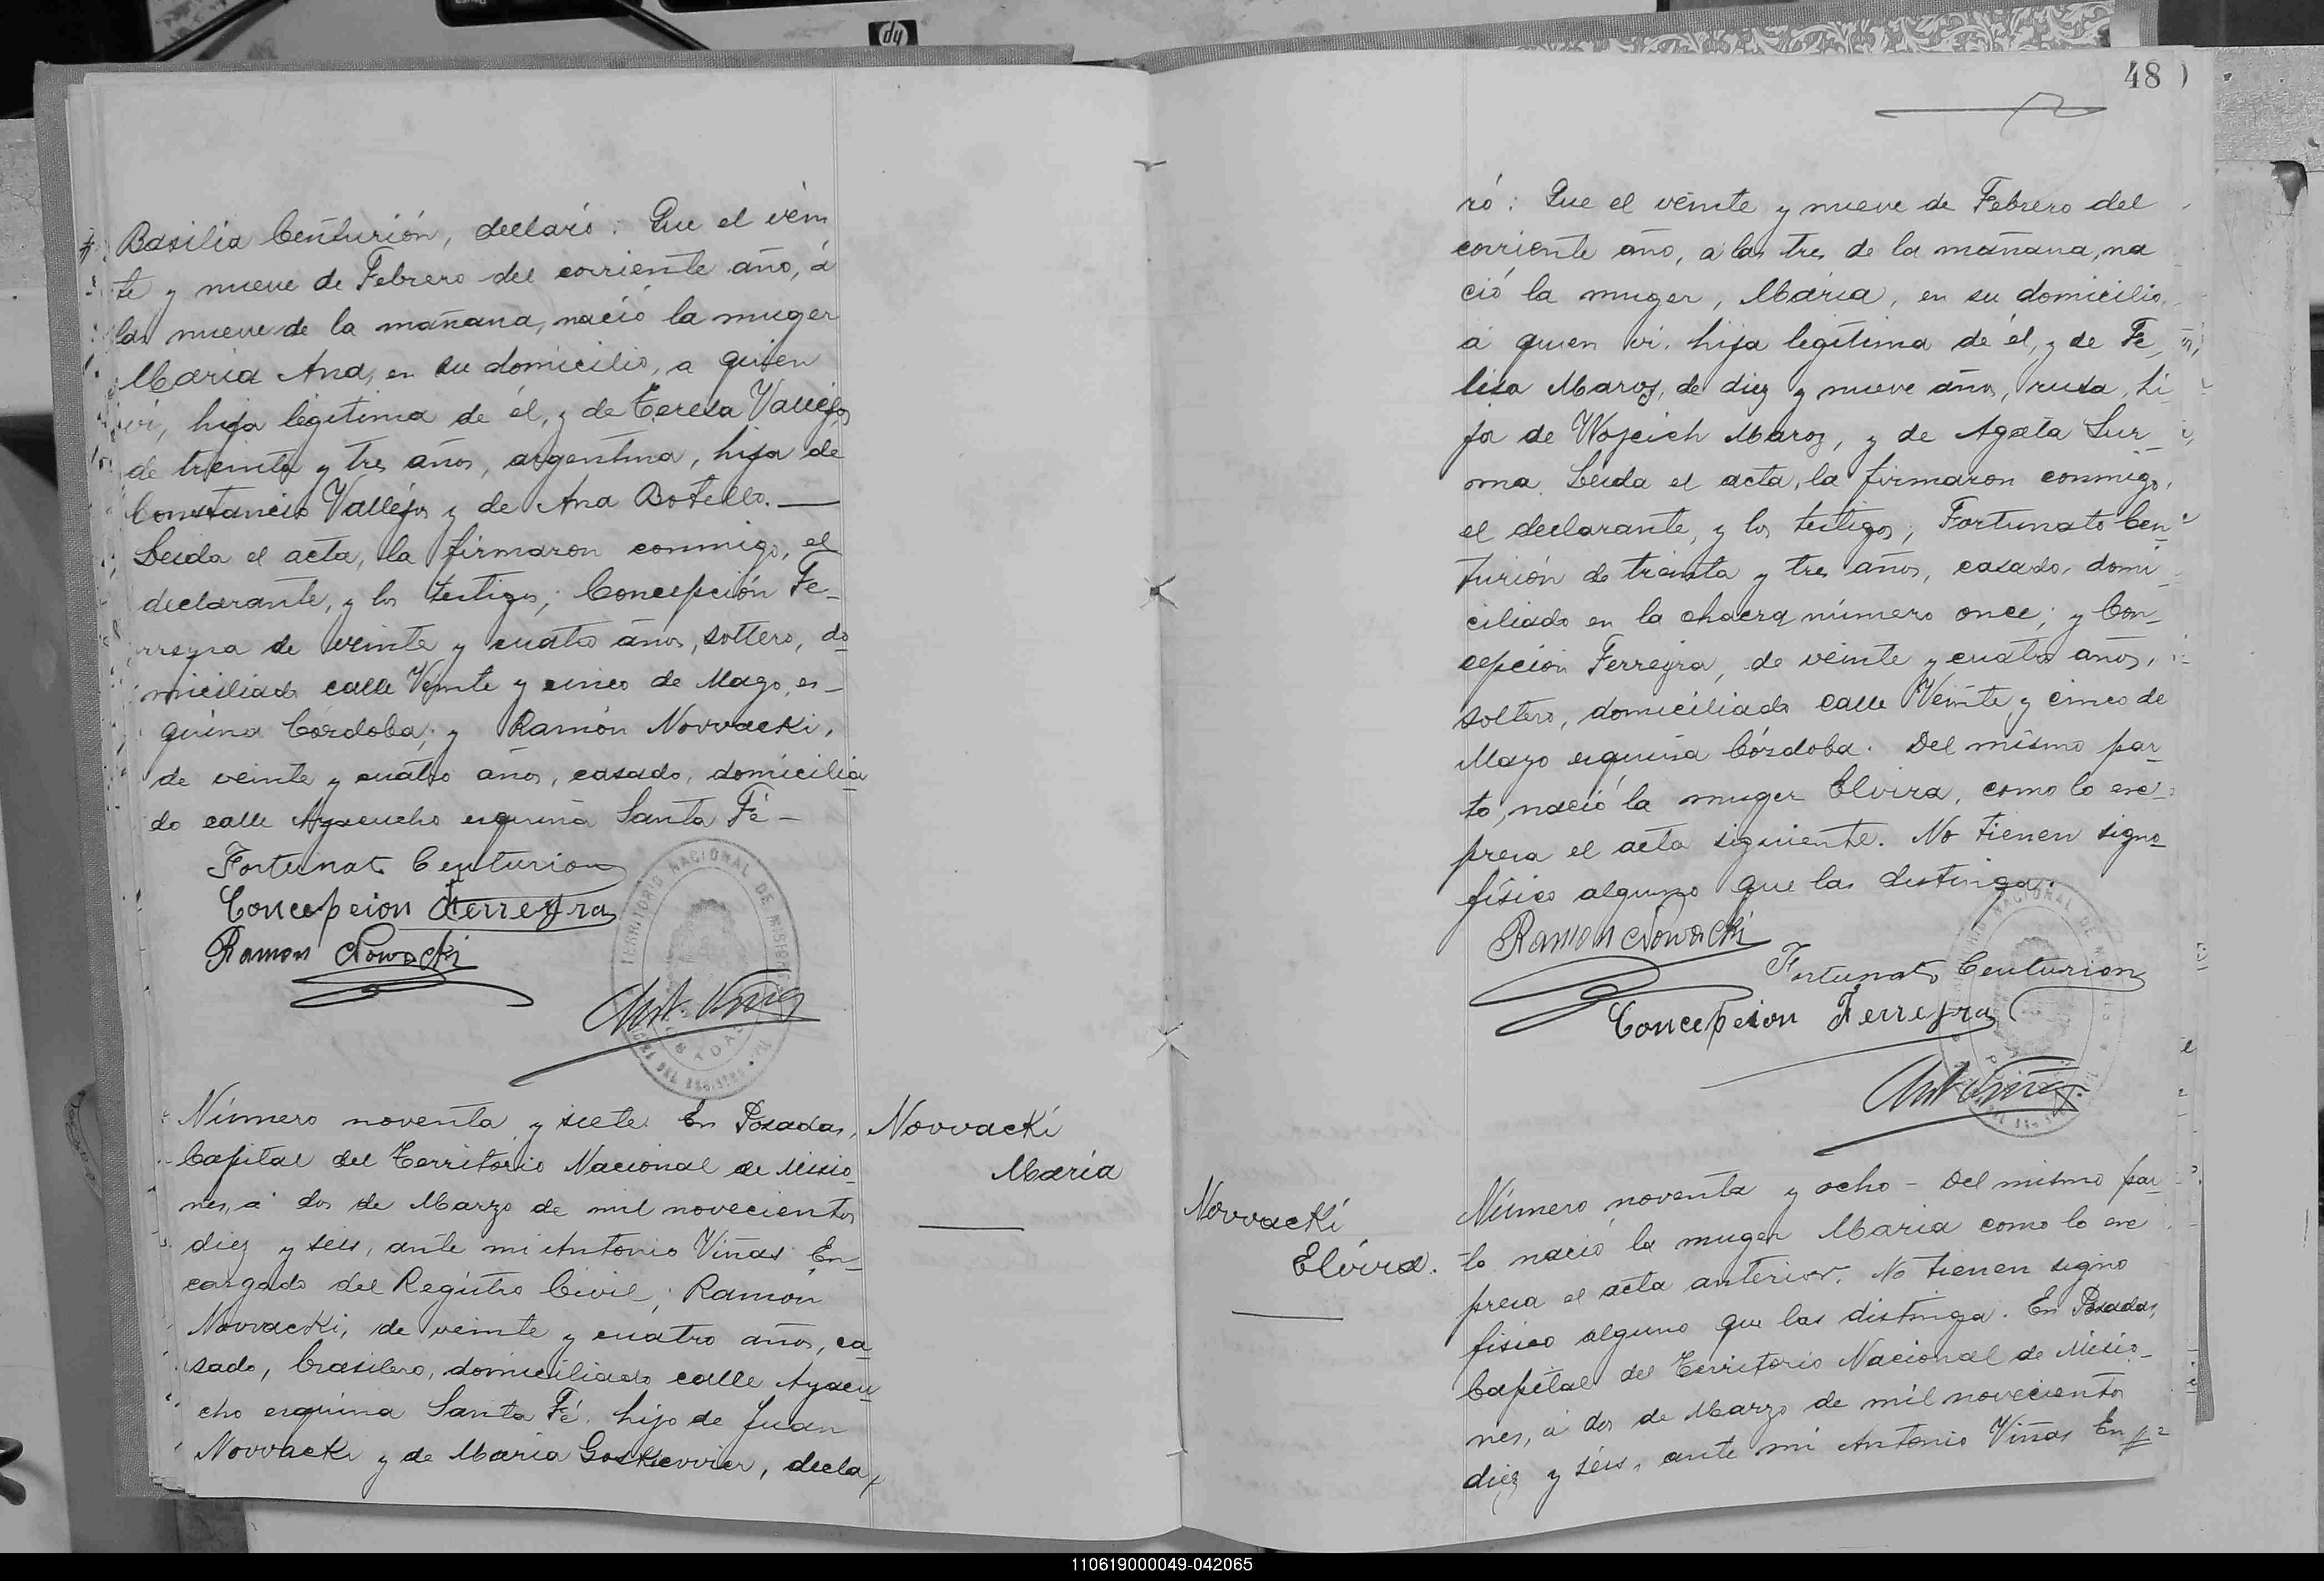 hp
Basilia Centurión, declaró: Que el vein
te y nueve de Febrero del corriente año, á
las nueve de la mañana, nació la muger
Maria Ana, en su domicilio, a quien
ví, hija legítima de él, y de Teresa Vallejos
de treinta y tres años, argentina, hija de
Constancio Vallejos y de Ana Botello.—
Leida el acta, la firmaron conmigo, el
declarante, y los testigos; Concepción Fe-
rreyra de veinte y cuatro años, soltero, do
miciliado calle Veinte y cinco de Mayo es-
quina Córdoba; y Ramón Novvacki,
de veinte y cuatro años, casado, domicilia
do calle Ayacucho esquina Santa Fé—
Fortunato Centurion
Concepcion Ferreyra
Ramon Nowacki
TERRITORIO NACIONAL DE MISIONES
Ant. Viñas
Número noventa y siete. En Posadas,
Capital del Territorio Nacional de Misio
nes, á dos de Marzo de mil novecientos
diez y seis, ante mi Antonio Viñas En-
cargado del Registro Civil; Ramón
Novvacki, de veinte y cuatro años, ca
sado, brasilero, domiciliado calle Ayacu
cho esquina Santa Fé, hijo de Juan
Novvacki y de Maria Goskievvier, decla
Novvacki
Maria
48
ró: Que el veinte y nueve de Febrero del
corriente año, a las tres de la mañana, na
ció la muger, Maria, en su domicilio,
á quien vi, hija legítima de él, y de Fe
lisa Maroz, de diez y nueve años, rusa, hi
ja de Wojcich Maroz, y de Agata Sur
ma. Leida el acta, la firmaron conmigo,
el declarante, y los testigos; Fortunato Cen
turión de treinta y tres años, casado, domi
ciliado en la chacra número once; y Con-
cepción Ferreyra, de veinte y cuatro años,
soltero, domiciliado calle Veinte y cinco de
Mayo esquina Córdoba. Del mismo par
to, nació la muger Elvira, como lo exe
presa el acta siguiente. No tienen signo
físico alguno que las distinga.
Ramon Nowacki
Fortunato Centurion
Concepcion Ferreyra
Ant Viñas
Novvacki
Elvira.
Número noventa y ocho- Del mismo par
to nació la muger Maria como lo exe
presa el acta anterior. No tienen signo
físico alguno que las distinga. En Posadas,
Capital del Territorio Nacional de Misio-
nes, á dos de Marzo de mil novecientos
diez y séis, ante mi Antonio Viñas En
110619000049-042065